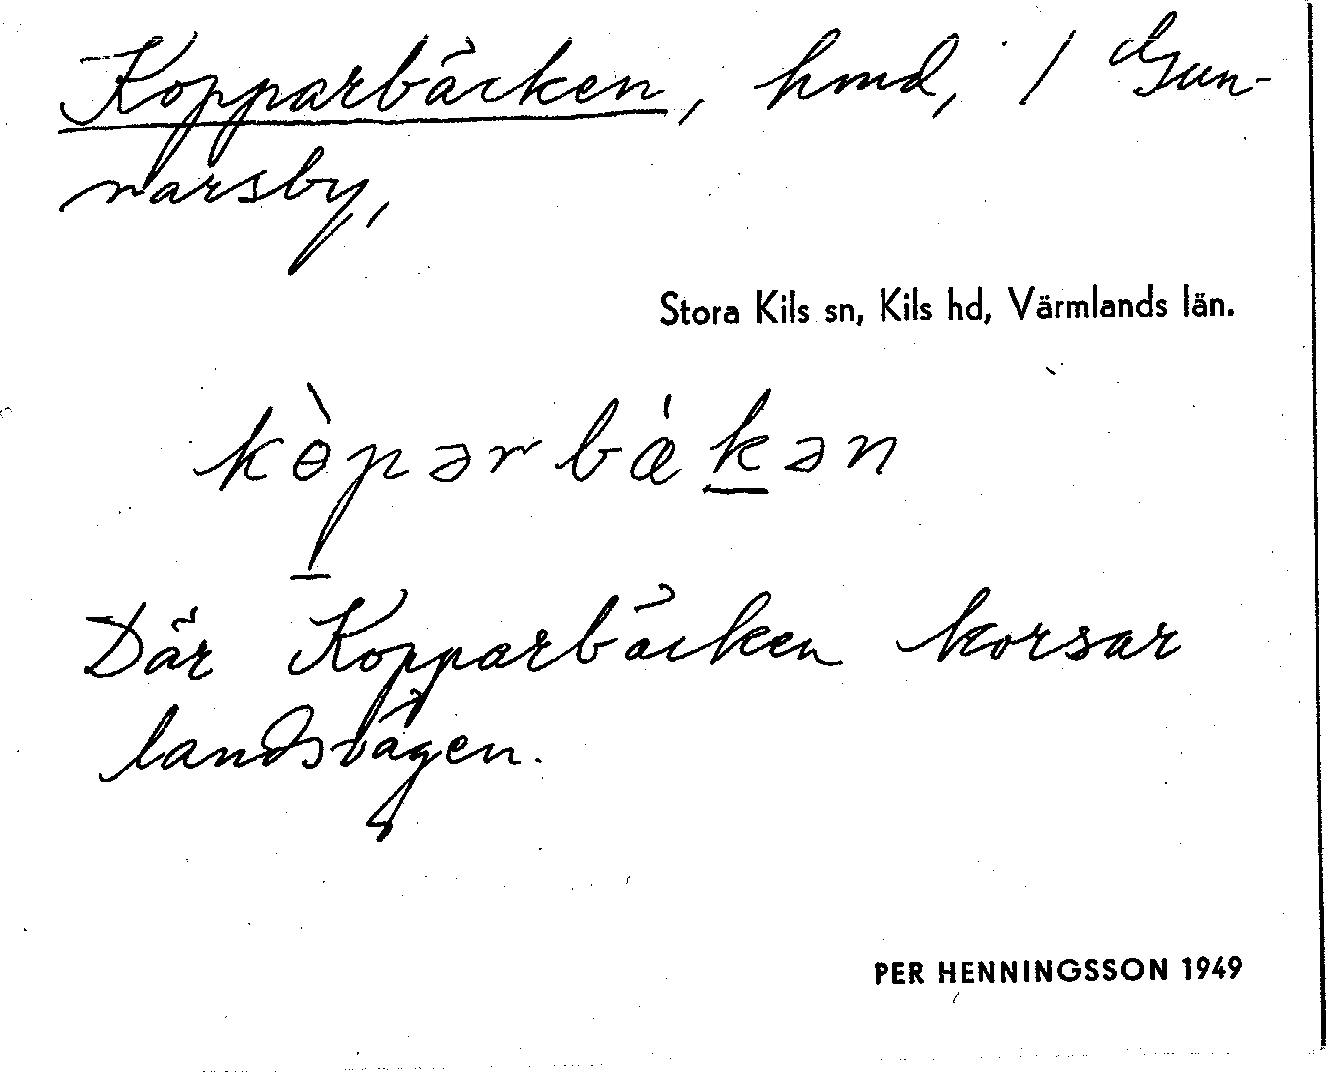 Kopparbäcken, hmd, / Gun-
narsby,
Stora Kils sn, Kils hd, Värmlands län.
kɵ̀p̲ərbǽk̲ən
Där Kopparbäcken korsar
landsvägen.
PER HENNINGSSON 1949